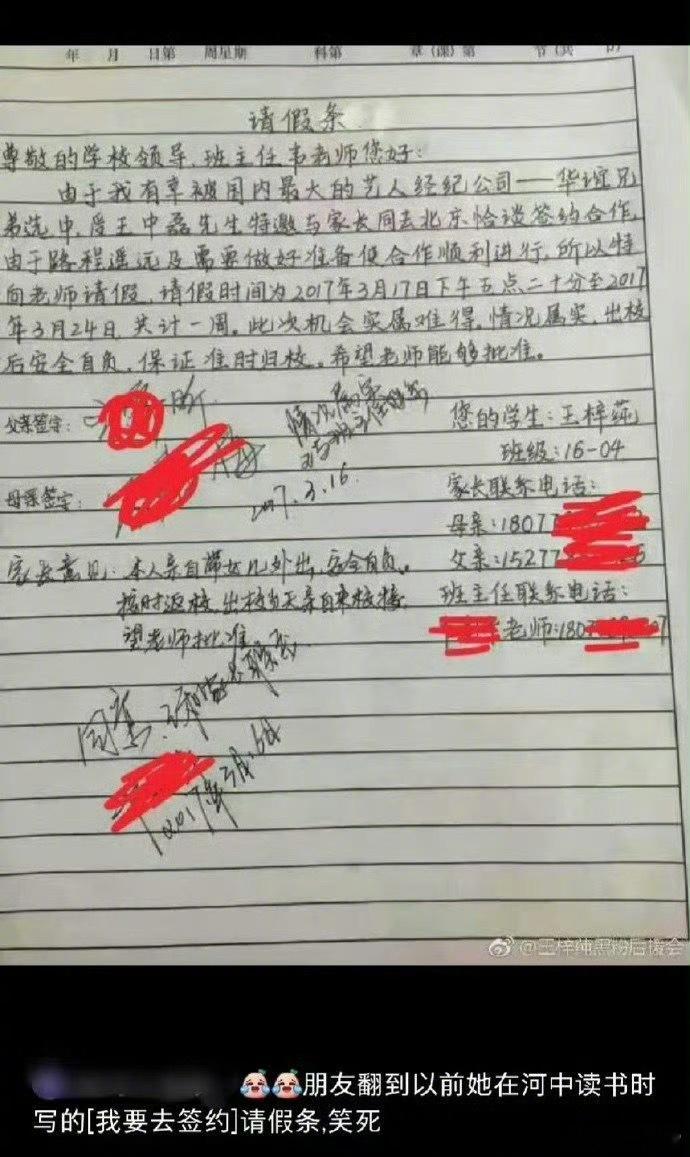 年 月 日第 周星期 科第 章(课)第 节(共
请假条
尊敬的学校领导、班主任韦老师您好:
由于我有幸被国内最大的艺人经纪公司——华谊兄
弟选中,受王中磊先生特邀与家长同去北京恰谈签约合作,
由于路程遥远及需要做好准备使合作顺利进行,所以特
向老师请假,请假时间为2017年3月17日下午五点二十分至2017
年3月24日,共计一周。此次机会实属难得,情况属实,出校
后安全自负,保证准时归校。希望老师能够批准。
父亲签字:
情况属实
2017.3.16
母亲签字:
您的学生:王梓莼
班级:16-04
家长联系电话:
母亲:18077
父亲:15277
班主任联系电话:
老师:180
家长意见:本人亲自带女儿外出,安全自负。
按时返校,出校当天亲自来校接,
望老师批准
同意
2017年3月16日
@王梓莼黑粉后援会
朋友翻到以前她在河中读书时
写的[我要去签约]请假条,笑死